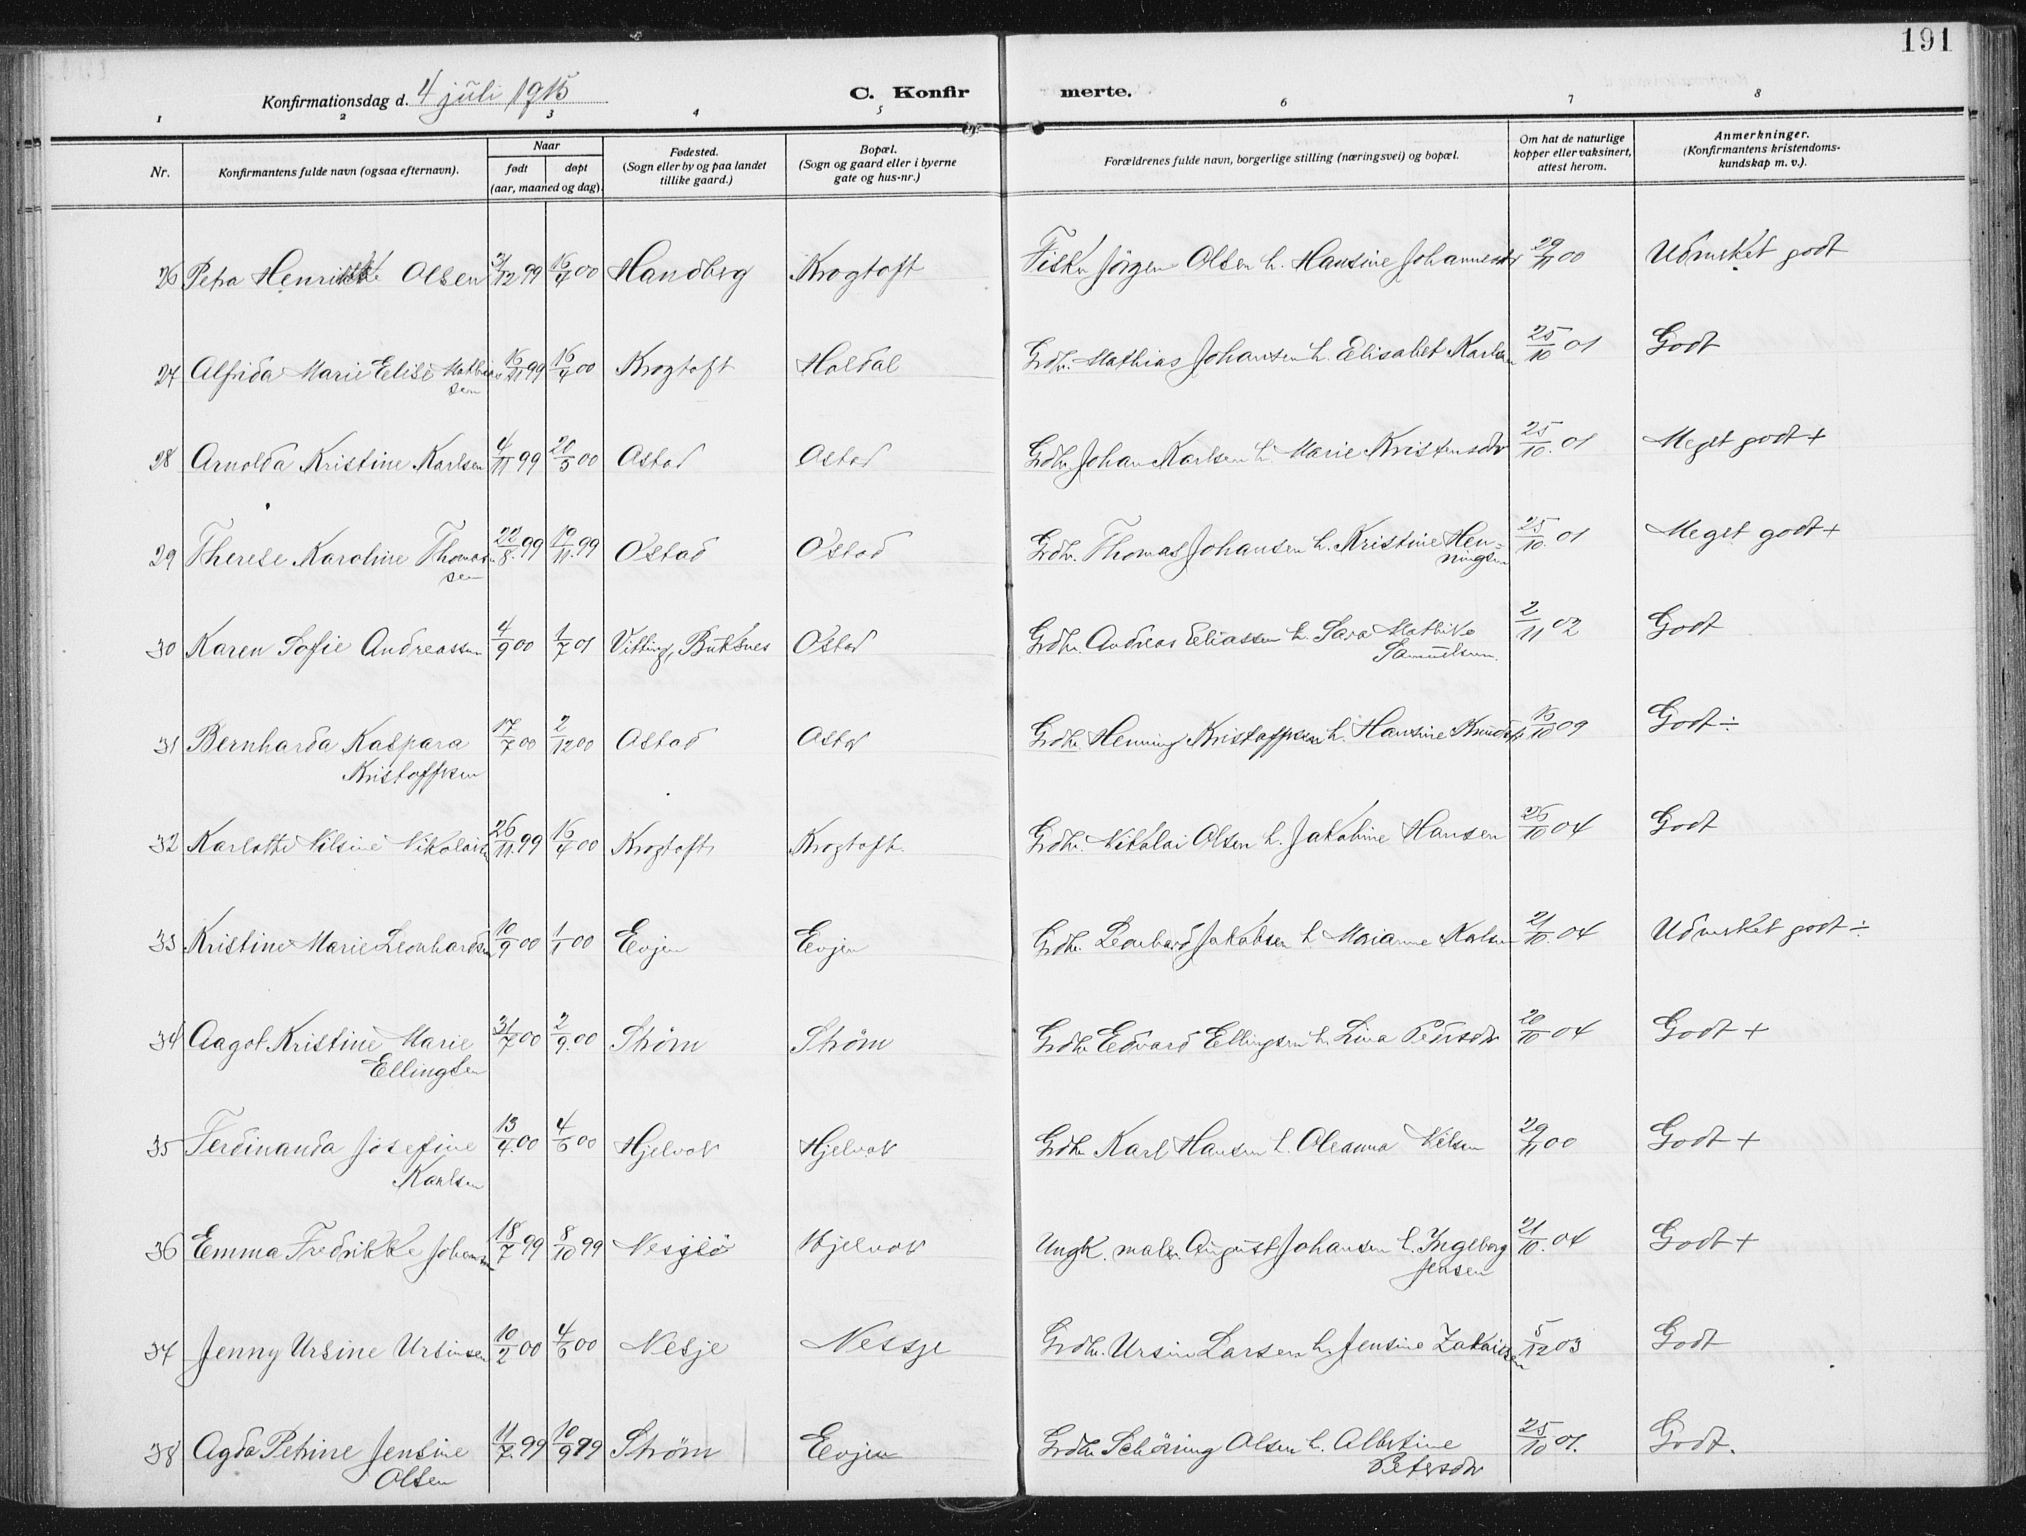 191
Konfirmationsdag d. 4 juli 1915 C. Konfir merte.
1 2 3 4 5 6 7 8
Nr. Konfirmantens fulde navn (ogsaa efternavn). Naar født døpt (aar, maaned og dag). Fødested. (Sogn eller by og paa landet tillike gaard.) Bopæl. (Sogn og gaard eller i byerne gate og hus-nr.) Forældrenes fulde navn, borgerlige stilling (næringsvei) og bopæl. Om hat de naturlige kopper eller vaksinert, attest herom. Anmerkninger. (Konfirmantens kristendoms-kundskap m. v.).
26 Petra Henrikke Olsen 31/12 99 16/4 00 Handberg Krogtoft Fisker Jörgen Olsen h. Hansine Johannesdr 29/11 00 Udmerket godt
27 Alfrida Marie Elise Mathias 16/11 99 16/4 00 Krogtoft Holdal Grdbr. Mathias Johansen h. Elisabet Karlsen 25/10 01 Godt
sen
28 Arnolda Kristine Karlsen 4/11 99 20/5 00 Ostad Ostad Grdbr Johan Karlsen h. Marie Kristensdr 25/10. 01 Meget godt +
29 Therese Karoline Thomas 22/8. 99 19/11. 99 Ostad Ostad Grdbr. Thomas Johansen h. Kristine Hen= 25/10. 01 Meget godt +
sen ningsen
30 Karen Sofie Andreassen 4/9 00 1/7 01 Vitting, Buksnes Ostad Grdbr. Andreas Eliassen h. Sara Mathike 2/11 02 Godt
Samuelsen.
31 Bernharda Kaspara 17/7 00 2/12 00 Ostad Ostad Grdbr. Henning Kristoffersen h. Hansine Knudsdr 16/10 09 Godt ÷
Kristoffersen
32 Karlotte Nilsine Nikolaisen 26/11. 99 16/4 00 Krogtoft Krogtoft. Grdbr. Nikolai Olsen h. Jakobine Hansen 26/10 04 Godt
33 Kristine Marie Leonhardsen 10/9 00 1/1 00 Evjen Evjen Grdbr. Leonhard Jakobsen h Marianne Karlsen 21/10. 04 Udmerket godt ÷
34 Aagot Kristine Marie 31/7 00 2/9. 00 Strøm Strøm Grdbr Edvard Ellingsen h. Lina Pedersdr 20/10 04 Godt +
Ellingsen
35 Ferdinanda Josefine 13/4. 00 4/6 00 Hjelvok Hjelvok Grdbr Karl Hansen h. Oleanna Nilsen 29/11 00 Godt +
Karlsen
36 Emma Fredrikke Johansen 18/7 99 8/10 99 Nesjeö Hjelvok Ungk. maler. August Johansen h. Ingeborg 21/10. 04 Godt +
Jensen
37 Jenny Ursine Ursinsen 10/2 00 4/6 00 Nesje Nessje Grdbr. Ursin Larsen h. Jensine Zakarisen 5/12 03 Godt
38 Agda Petrine Jensine 11/7. 99 10/9 99 Strøm Evjen Grdbr Schöning Olsen h. Albertine 25/10 01. Godt.
Olsen Petersdr